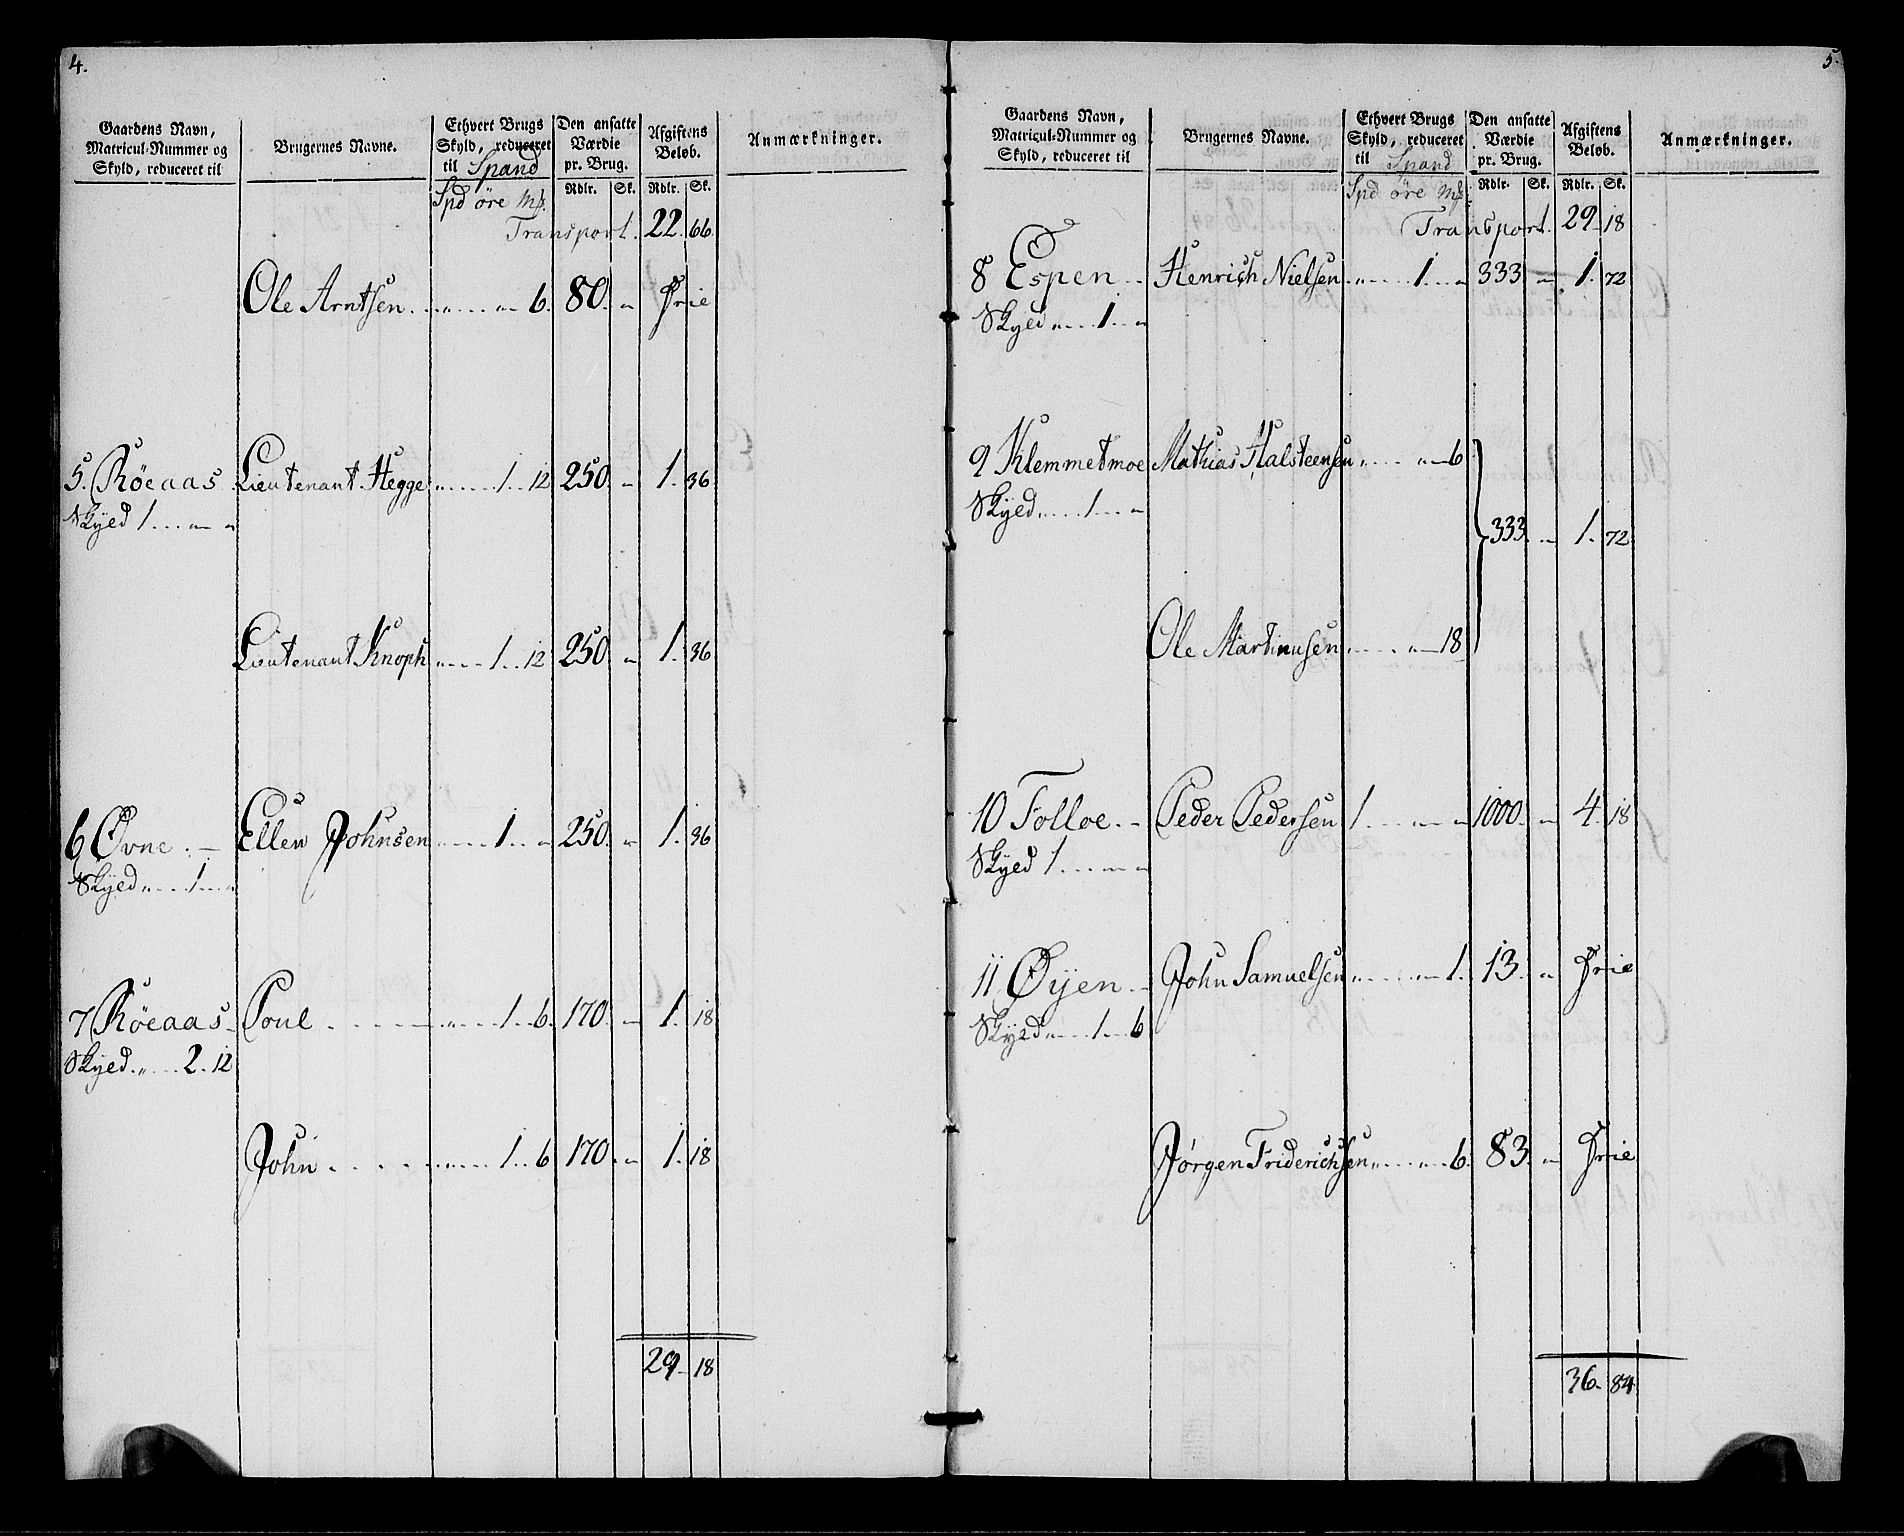 4.
Gaardens Navn, Matricul-Nummer og Skyld, reduceret til | Brugernes Navne. | Ethvert Brugs Skyld, reduceret til Spand | Den ansatte Værdie pr. Brug. | Afgiftens Beløb. | Anmærkninger.
Spd øre Mk. | Rdlr. Sk. | Rdlr. Sk.
Transport. 22. 66.
Ole Arntsen . . . „ . . . „ – 6. 80. „ Frie
5. Röeaas Lieutenant Hegge „ . . . 1 . . 12 250. „ 1. 36
Skyed 1 . . . „ – „
Lieutenant Knoph „ . . . 1 . . 12 250 „ 1. 36
6 Øvne . – Ellen Johnsen „ . . . 1 . . „ 250. „ 1. 36
Skyed „ . . . 1 . . . „
7 Röeaas Poul . . . . . „ . . . 1 . . 6. 170. – 1. 18
Skyed . „ . . . 2 . 12
John . . . . . „ . . . 1 . . 6 170. „ 1. 18
29 – 18
5.
Gaardens Navn, Matricul-Nummer og Skyld, reduceret til | Brugernes Navne. | Ethvert Brugs Skyld, reduceret til Spand | Den ansatte Værdie pr. Brug. | Afgiftens Beløb. | Anmærkninger.
Spd øre Mk. | Rdlr. Sk. | Rdlr. Sk.
Transport. 29 – 18
8 Espen . – Henrich Nielsen „ . . . 1 . . . „ 333 – 1. 72
Skyed „ . . . 1 . . „
9 Klemmetmoe Mathias Halsteensen „ . . . . „ – 6
Skyed „ . . . 1 . . . „
333. „ 1. 72.
Ole Martinusen . . . . . „ – 18
10 Folloe . – Peder Pedersen 1 . . . „ – „ 1000. „ 4. 18
Skyed 1 . . . „ – „
11 Øyen . – John Samuelsen „ . . . . „ – 1. 13. „ Frie
Skyed „ . . . 1 – 6
Jørgen Friderichsen „ . . . „ . . 6. 83. „ Frie
36. 84.